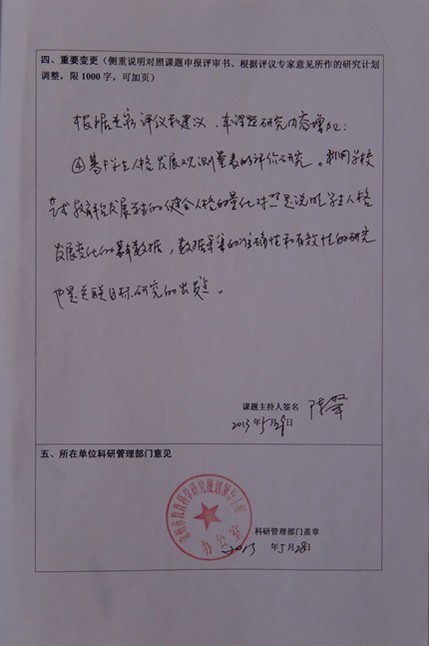 四、重要变更（侧重说明对照课题申报评审书、根据评议专家意见所作的研究计划
调整，限1000字，可加页）
根据专家评议和建议，本课题研究内容增加：
④基于学生人格发展观测量表的评价研究。利用学校
教育和发展学生的健全人格的量化对照是说明学生人格
发展变化的基本数据，数据采集的准确性和有效性的研究
也是关联目标研究的出发点。
课题主持人签名
2013年5月 日
五、所在单位科研管理部门意见
市教育科学研究规划领导小组
办公室
科研管理部门盖章
2013年5月28日